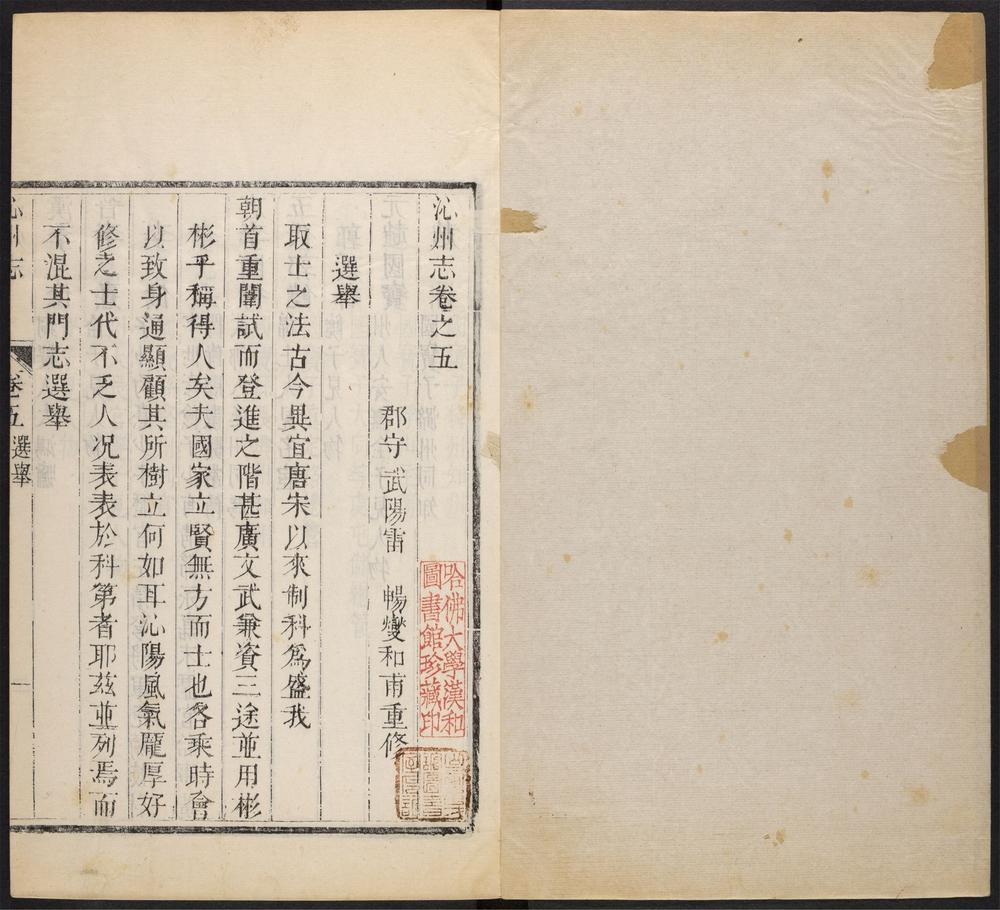 沁州志卷之五
郡守武陽雷　暢燮和甫重修
選舉
取士之法古今異宜唐宋以來制科爲盛我
朝首重闈試而登進之階甚廣文武兼資三途並用彬
彬乎稱得人矣夫國家立賢無方而士也各乘時會
以致身通顯顧其所樹立何如耳沁陽風氣龎厚好
修之士代不乏人况表表於科第者耶茲並列焉而
不混其門志選舉
沁州志
卷五
選舉
一
哈佛大學漢和
圖書館珍藏印